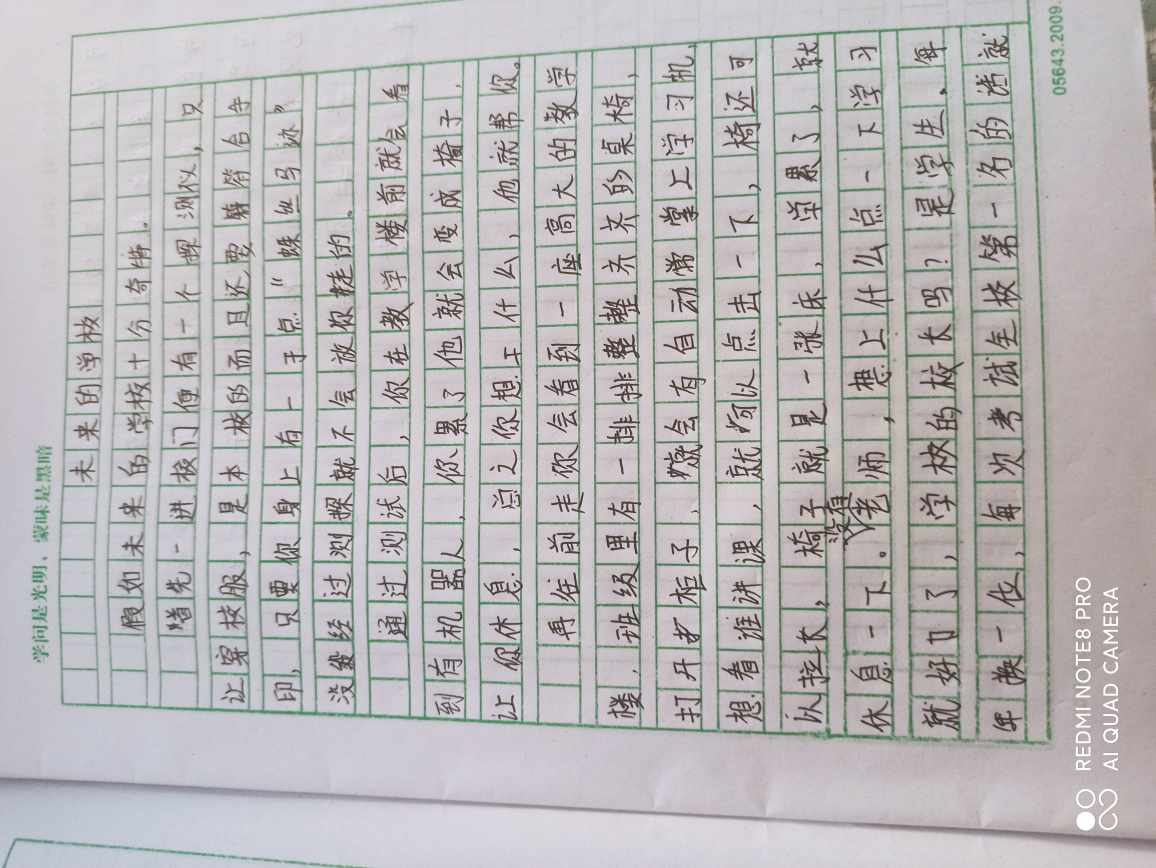 学问是光明，蒙昧是黑暗
未来的学校
假如未来的学校十分奇特。
首先一进校门便有一个探测仪，只
让穿校服，是本校的而且还要符合手
印，只要你身上有一于点“蛛丝马迹”
没经过测探就不会放你进的。
通过测试后，你在教学楼前就会看
到有机器人，你累了他就会变成椅子，
让你休息，总之你想上什么，他就帮你。
再往前走你会看到一座高大的教学
楼，班级里有一排排整整齐齐的桌椅，
打开柜子，就会有自动掌上学习机，
想看谁讲课，就可以点击一下，椅还可
以拉长，椅子就是一张床，学累了，就
休息一下。没有老师，想上什么点一下学习
就好了，学校的校长吗？是学生。每
年换一位，每次考试全校第一名的话就
05643.2009.
REDMI NOTE8 PRO
AI QUAD CAMERA